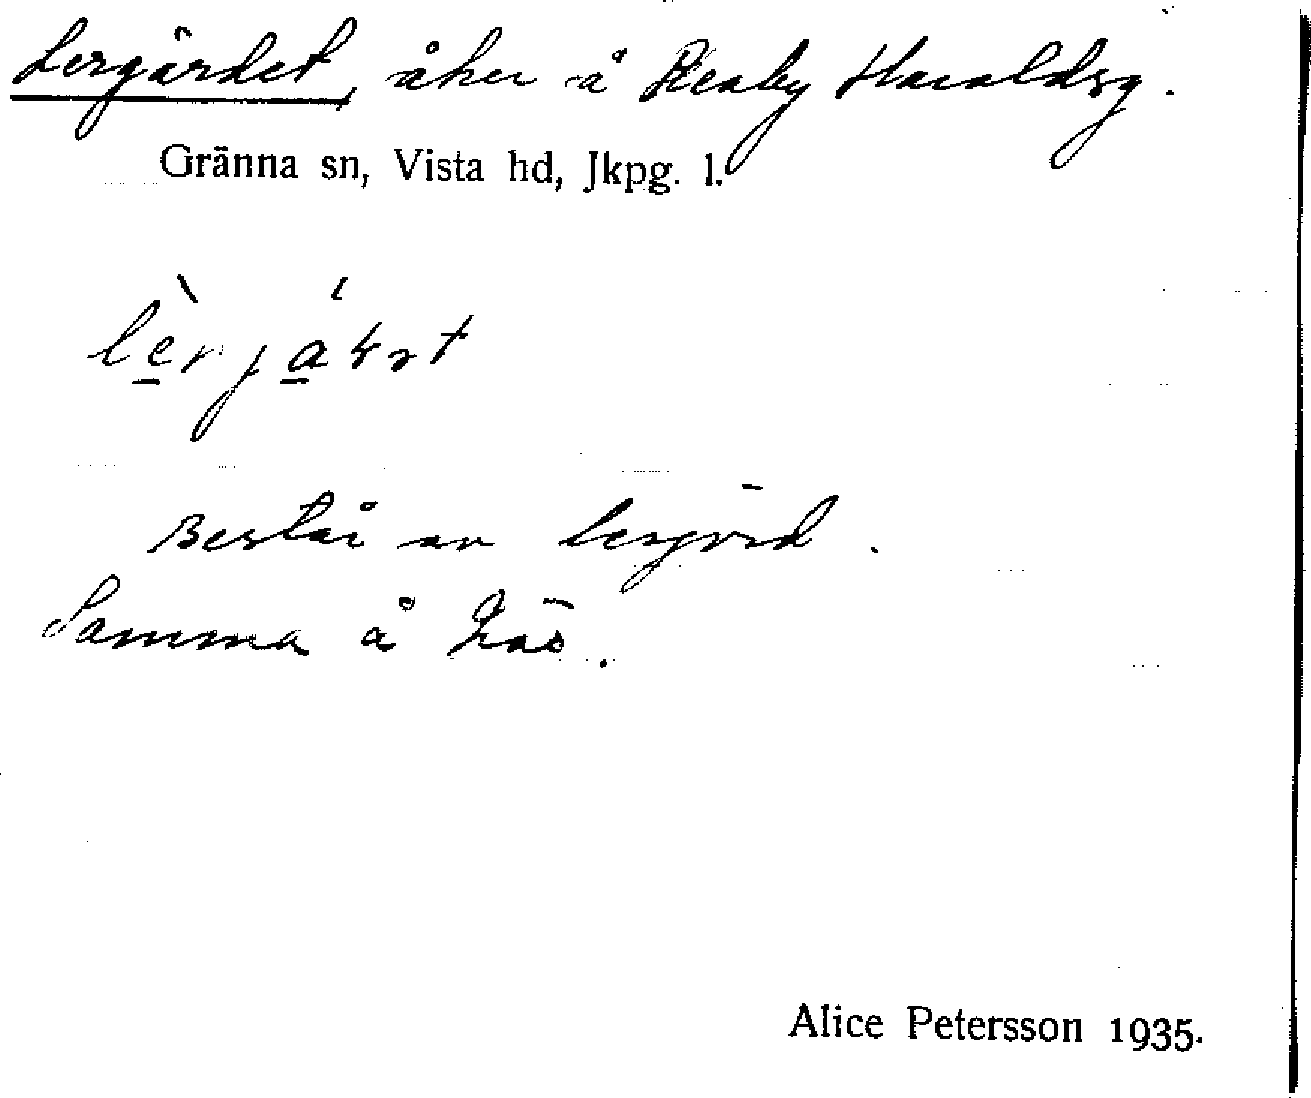 Lergärdet, åker å Reaby Haraldsg.
Gränna sn, Vista hd, Jkpg. l.
Består av lerjord.
Samma å Näs.
Alice Petersson 1935.